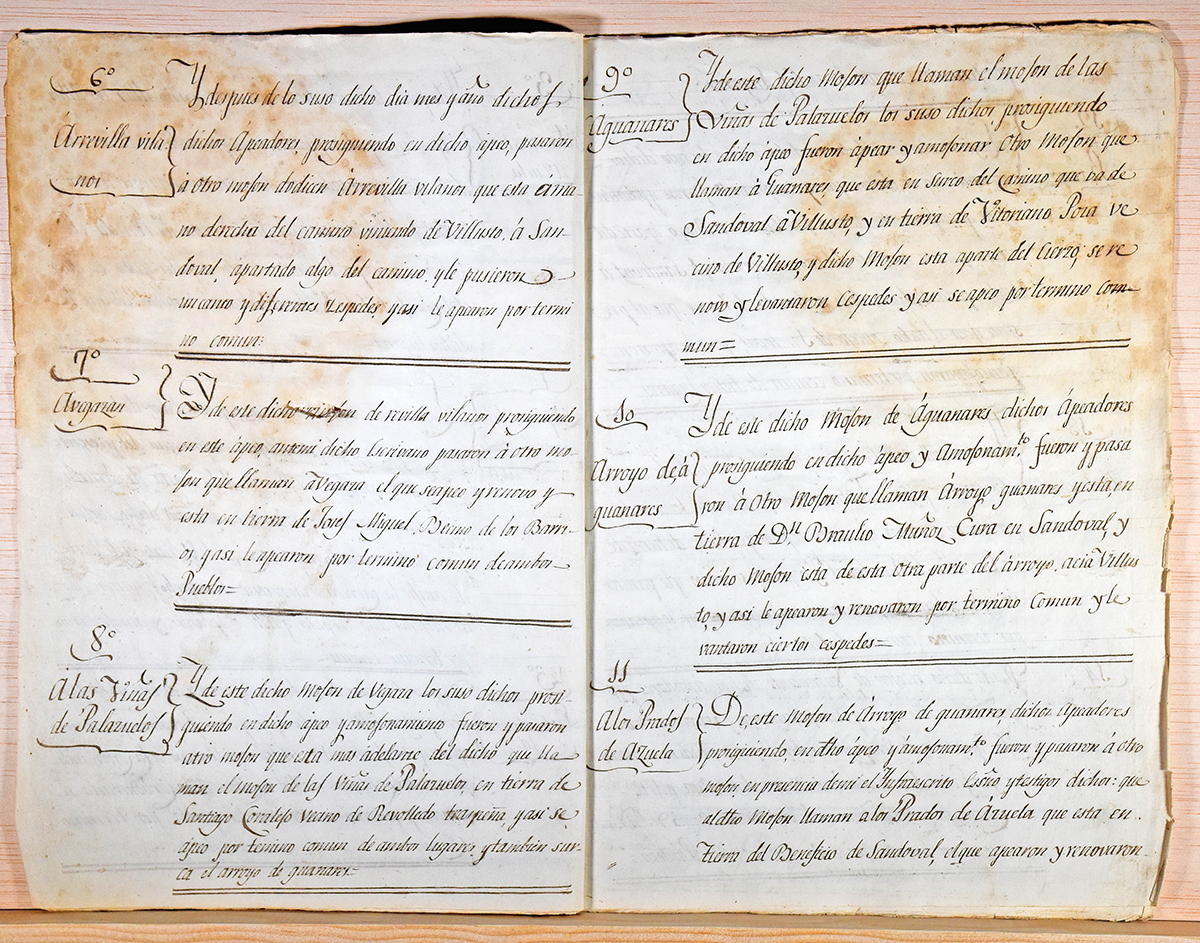 6º
Arrevilla vila
nos
Y despues de lo suso dicho dia mes y año dichos
dichos Apeadores, prosiguiendo en dicho ápeo, pasaron
á otro moson do dicen Arrevilla vilanos que esta á ma
no derecha del camino viniendo de Villusto, á San-
doval, apartado algo del camino, y le pusieron
un canto y diferentes zespedes, y asi le apearon por termi
no comun=
7º
Avegaran
Y de este dicho moson de revilla vilanos prosiguiendo
en este ápeo, antemi dicho Escrivano pasaron á otro mo-
son que llaman avegara el que se apeo y renovo y
esta en tierra de Josef Miguel Becino de los Barri-
os, y asi le apearon por termino comun de ambos
Pueblos=
8º
A las Viñas
de Palazuelos
Y de este dicho moson de Vegara los suso dichos prosi-
guiendo en dicho ápeo y amosonamiento fueron y pasaron
atro moson que está mas adelante del dicho que lla
man el moson de las Viñas de Palazuelos, en tierra de
Santiago Corralejo Vecino de Revolledo traspeña, y asi se
ápeo por termino comun de ambos lugares y tambien sur-
ca el arroyo de guanares=
9º
Aguanares
Y de este dicho moson que llaman el moson de las
Viñas de Palazuelos los suso dichos prosiguiendo
en dicho ápeo fueron ápear y amosonar Otro Moson que
llaman á Guanares que esta en surco del camino que va de
Sandoval á Villusto, y en tierra de Vitoriano Poza ve
cino de Villusto, y dicho Moson esta aparte del Cierzo, se re
novo y levantaron Cespedes y asi se apeo por termino com-
mun=
10
Arroyo de á
guanares
Y de este dicho Moson de Aguanares dichos Apeadores
prosiguiendo en dicho ápeo y Amosonam.to fueron y pasa
ron á Otro Moson que llaman Arroyo guanares y esta, en
tierra de D.n Braulio Muñoz Cura en Sandoval, y
dicho Moson esta de esta Otra parte del árroyo, acia Villus
to, y asi le apearon y renovaron por termino Comun y le
vantaron ciertos cespedes=
11
A los Prados
de Azuela
De, este Moson de Arroyo de guanares, dichos Apeadores
prosiguiendo, en dho ápeo y ámosonam.to fueron y pasaron á otro
moson, en presencia de mi el Infraescrito Essño y testigos dichos: que
al dho Moson llaman a los Prados de Azuela que esta en
Tierra del Beneficio de Sandoval, el que apearon y renovaron